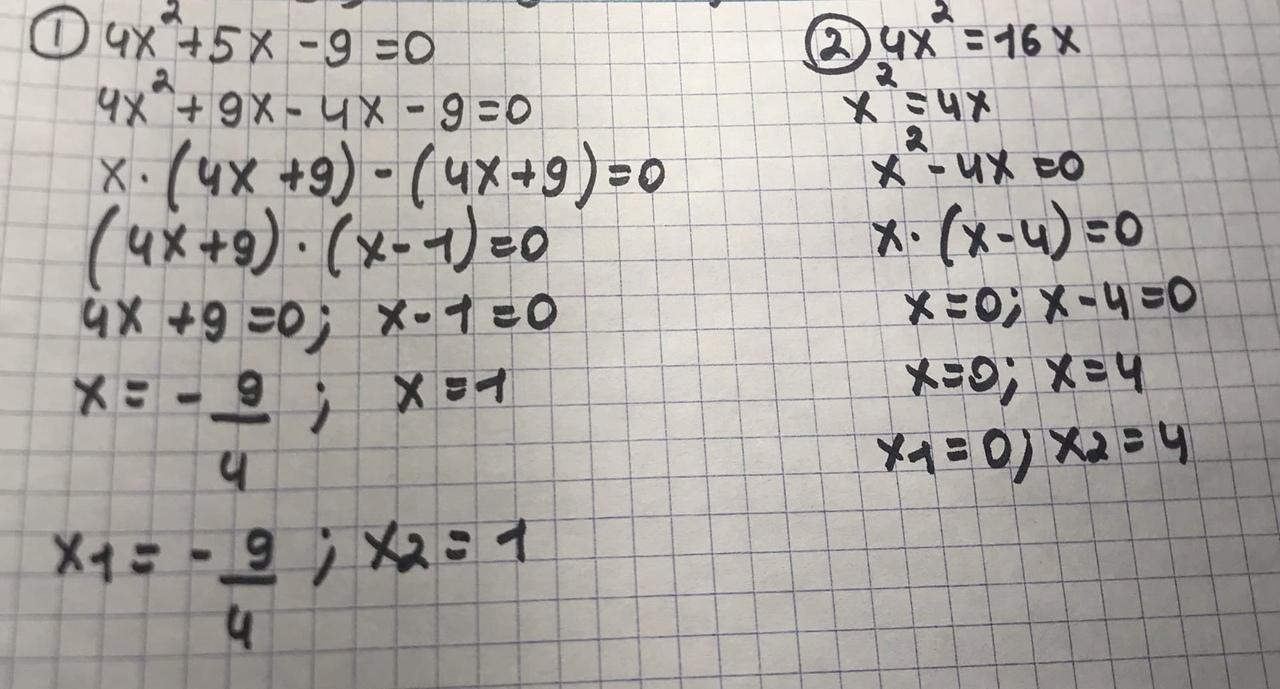 ① 4x²+5x-9=0
4x²+9x-4x-9=0
x·(4x+9)-(4x+9)=0
(4x+9)·(x-1)=0
4x+9=0; x-1=0
x=-9/4; x=1
x1=-9/4; x2=1
② 4x²=16x
x²=4x
x²-4x=0
x·(x-4)=0
x=0; x-4=0
x=0; x=4
x1=0; x2=4